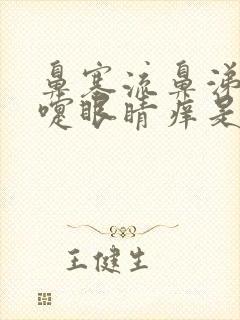 鼻塞流鼻涕
嚏眼睛痒是
王健生